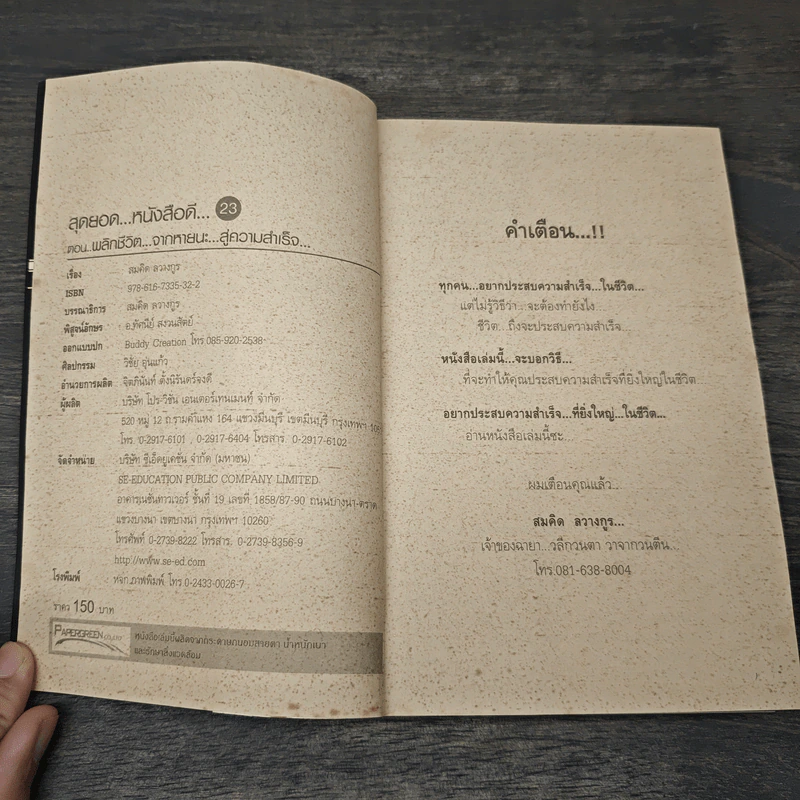 สุดยอด...หนังสือดี... 23
ตอน..พลิกชีวิต...จากหายนะ...สู่ความสำเร็จ...
เรื่อง สมคิด ลวางกูร
ISBN 978-616-7335-32-2
บรรณาธิการ สมคิด ลวางกูร
พิสูจน์อักษร อ.ทัศนีย์ สงวนสัตย์
ออกแบบปก Buddy Creation โทร 085-920-2538
ศิลปกรรม วิชัย อุ่นแก้ว
อำนวยการผลิต จิตภินันท์ ตั้งนิรันดร์จงดี
ผู้ผลิต บริษัท โปร-วิชั่น เอนเตอร์เทนเมนท์ จำกัด
520 หมู่ 12 ถ.รามคำแหง 164 แขวงมีนบุรี เขตมีนบุรี กรุงเทพฯ
โทร. 0-2917-6101 , 0-2917-6404 โทรสาร 0-2917-6102
จัดจำหน่าย บริษัท ซีเอ็ดยูเคชั่น จำกัด (มหาชน)
SE-EDUCATION PUBLIC COMPANY LIMITED.
อาคารเนชั่นทาวเวอร์ ชั้นที่ 19 เลขที่ 1858/87-90 ถนนบางนา-ตราด
แขวงบางนา เขตบางนา กรุงเทพฯ 10260
โทรศัพท์ 0-2739-8222 โทรสาร. 0-2739-8356-9
http://www.se-ed.com
โรงพิมพ์ หจก.ภาพพิมพ์ โทร 0-2433-0026-7
ราคา 150 บาท
PAPERGREEN
หนังสือเล่มนี้ผลิตจากกระดาษถนอมสายตา น้ำหนักเบา
และรักษาสิ่งแวดล้อม
คำเตือน...!!
ทุกคน...อยากประสบความสำเร็จ...ในชีวิต...
แต่ไม่รู้วิธีว่า...จะต้องทำยังไง...
ชีวิต...ถึงจะประสบความสำเร็จ...
หนังสือเล่มนี้...จะบอกวิธี...
ที่จะทำให้คุณประสบความสำเร็จที่ยิ่งใหญ่ในชีวิต...
อยากประสบความสำเร็จ...ที่ยิ่งใหญ่...ในชีวิต...
อ่านหนังสือเล่มนี้ซะ...
ผมเตือนคุณแล้ว...
สมคิด ลวางกูร...
เจ้าของฉายา...วลีกวนตา วาจากวนตีน...
โทร.081-638-8004